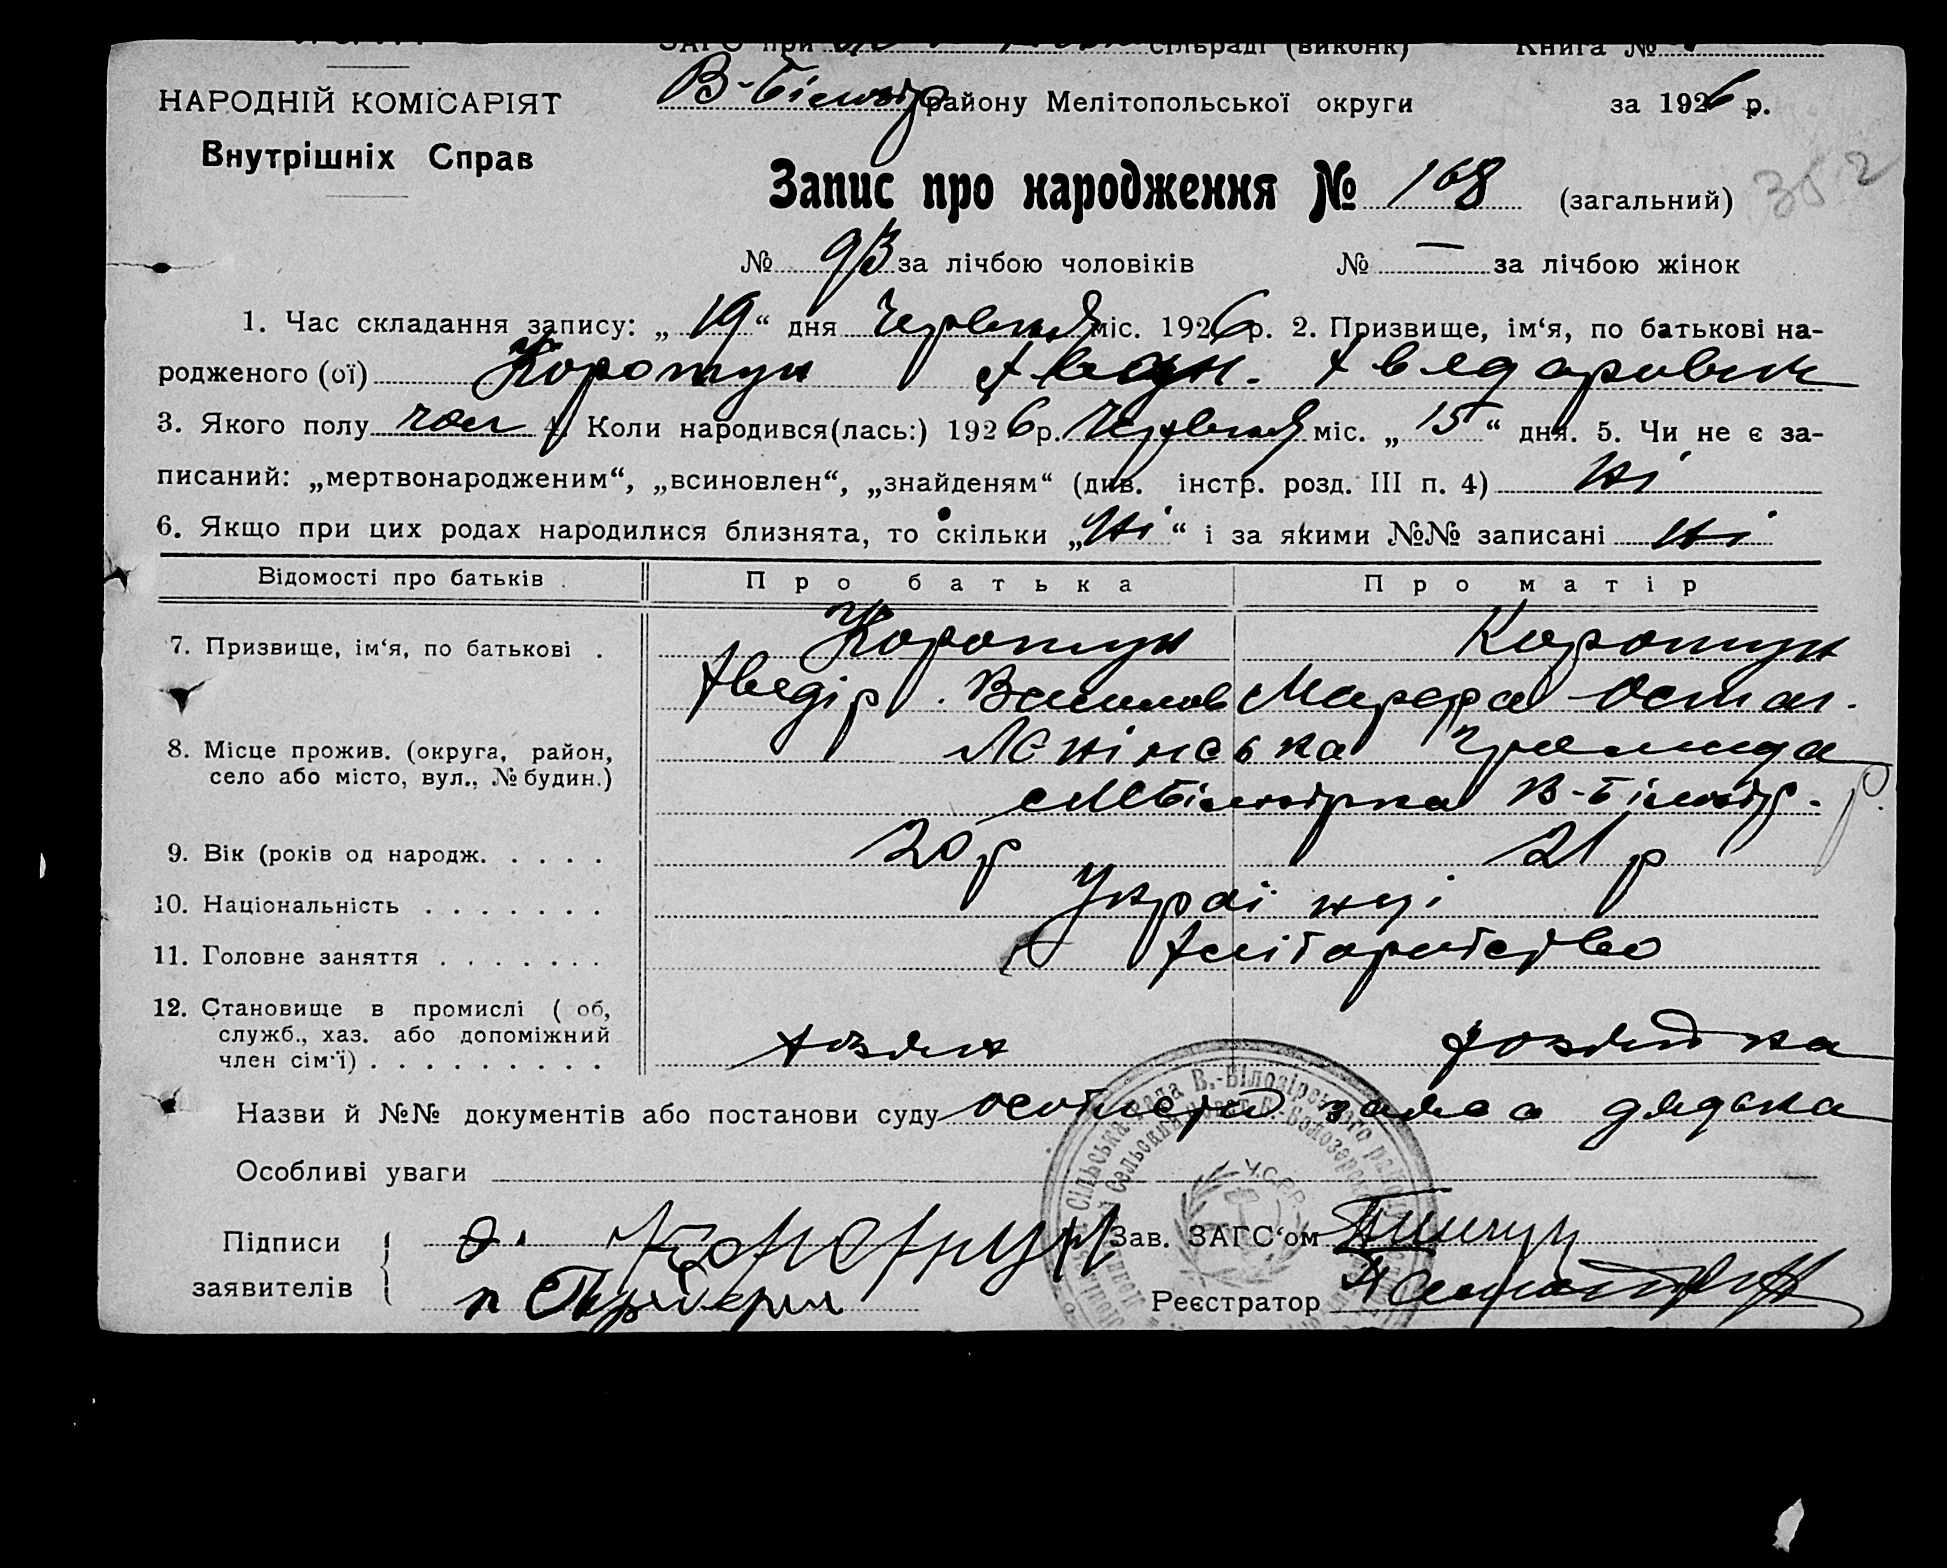 ЗАГС при сільраді (виконк) Книга №
НАРОДНІЙ КОМІСАРІЯТ
В-Білозір району Мелітопольської округи за 1926 р.
Внутрішніх Справ
Запис про народження № 168 (загальний)
352
№ 93 за лічбою чоловіків № — за лічбою жінок
1. Час складання запису: „19“ дня Червня міс. 1926 р. 2. Призвище, ім‘я, по батькові на-
родженого (ої) Коротун
3. Якого полу чол 4. Коли народився(лась:) 1926 р. Червня міс. „15“ дня. 5. Чи не є за-
писаний: „мертвонародженим“, „всиновлен“, „знайденям“ (див. інстр. розд. III п. 4) Ні
6. Якщо при цих родах народилися близнята, то скільки „Ні“ і за якими №№ записані Ні
Відомості про батьків Про батька Про матір
7. Призвище, ім‘я, по батькові . Коротун Коротун
Хведір Васильов Марфа Остап.
8. Місце прожив. (округа, район, Ленінська громада
село або місто, вул., № будин.) В-Білозір. р.
9. Вік (років од народж. . . . . 20 р 21 р
10. Національність . . . . . . . Україн
11. Головне заняття . . . . . . . Хліборобство
12. Становище в промислі ( об,
служб., хаз. або допоміжний
член сім‘ї) . . . . . . . . . хозяін хозяйка
Назви й №№ документів або постанови суду особиста заява дядька
Особливі уваги
Підписи Зав. ЗАГС‘ом
заявителів
Реєстратор
Сільська Рада В.-Білозірського району
У.С.Р.Р.